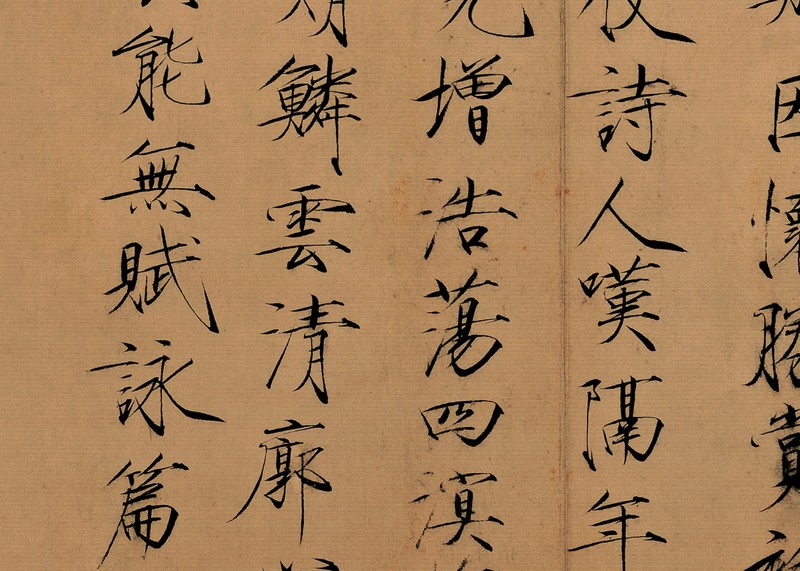 因懷勝賞
詩人嘆隔年
增浩蕩四溟
鱗雲清廓
能無賦詠篇